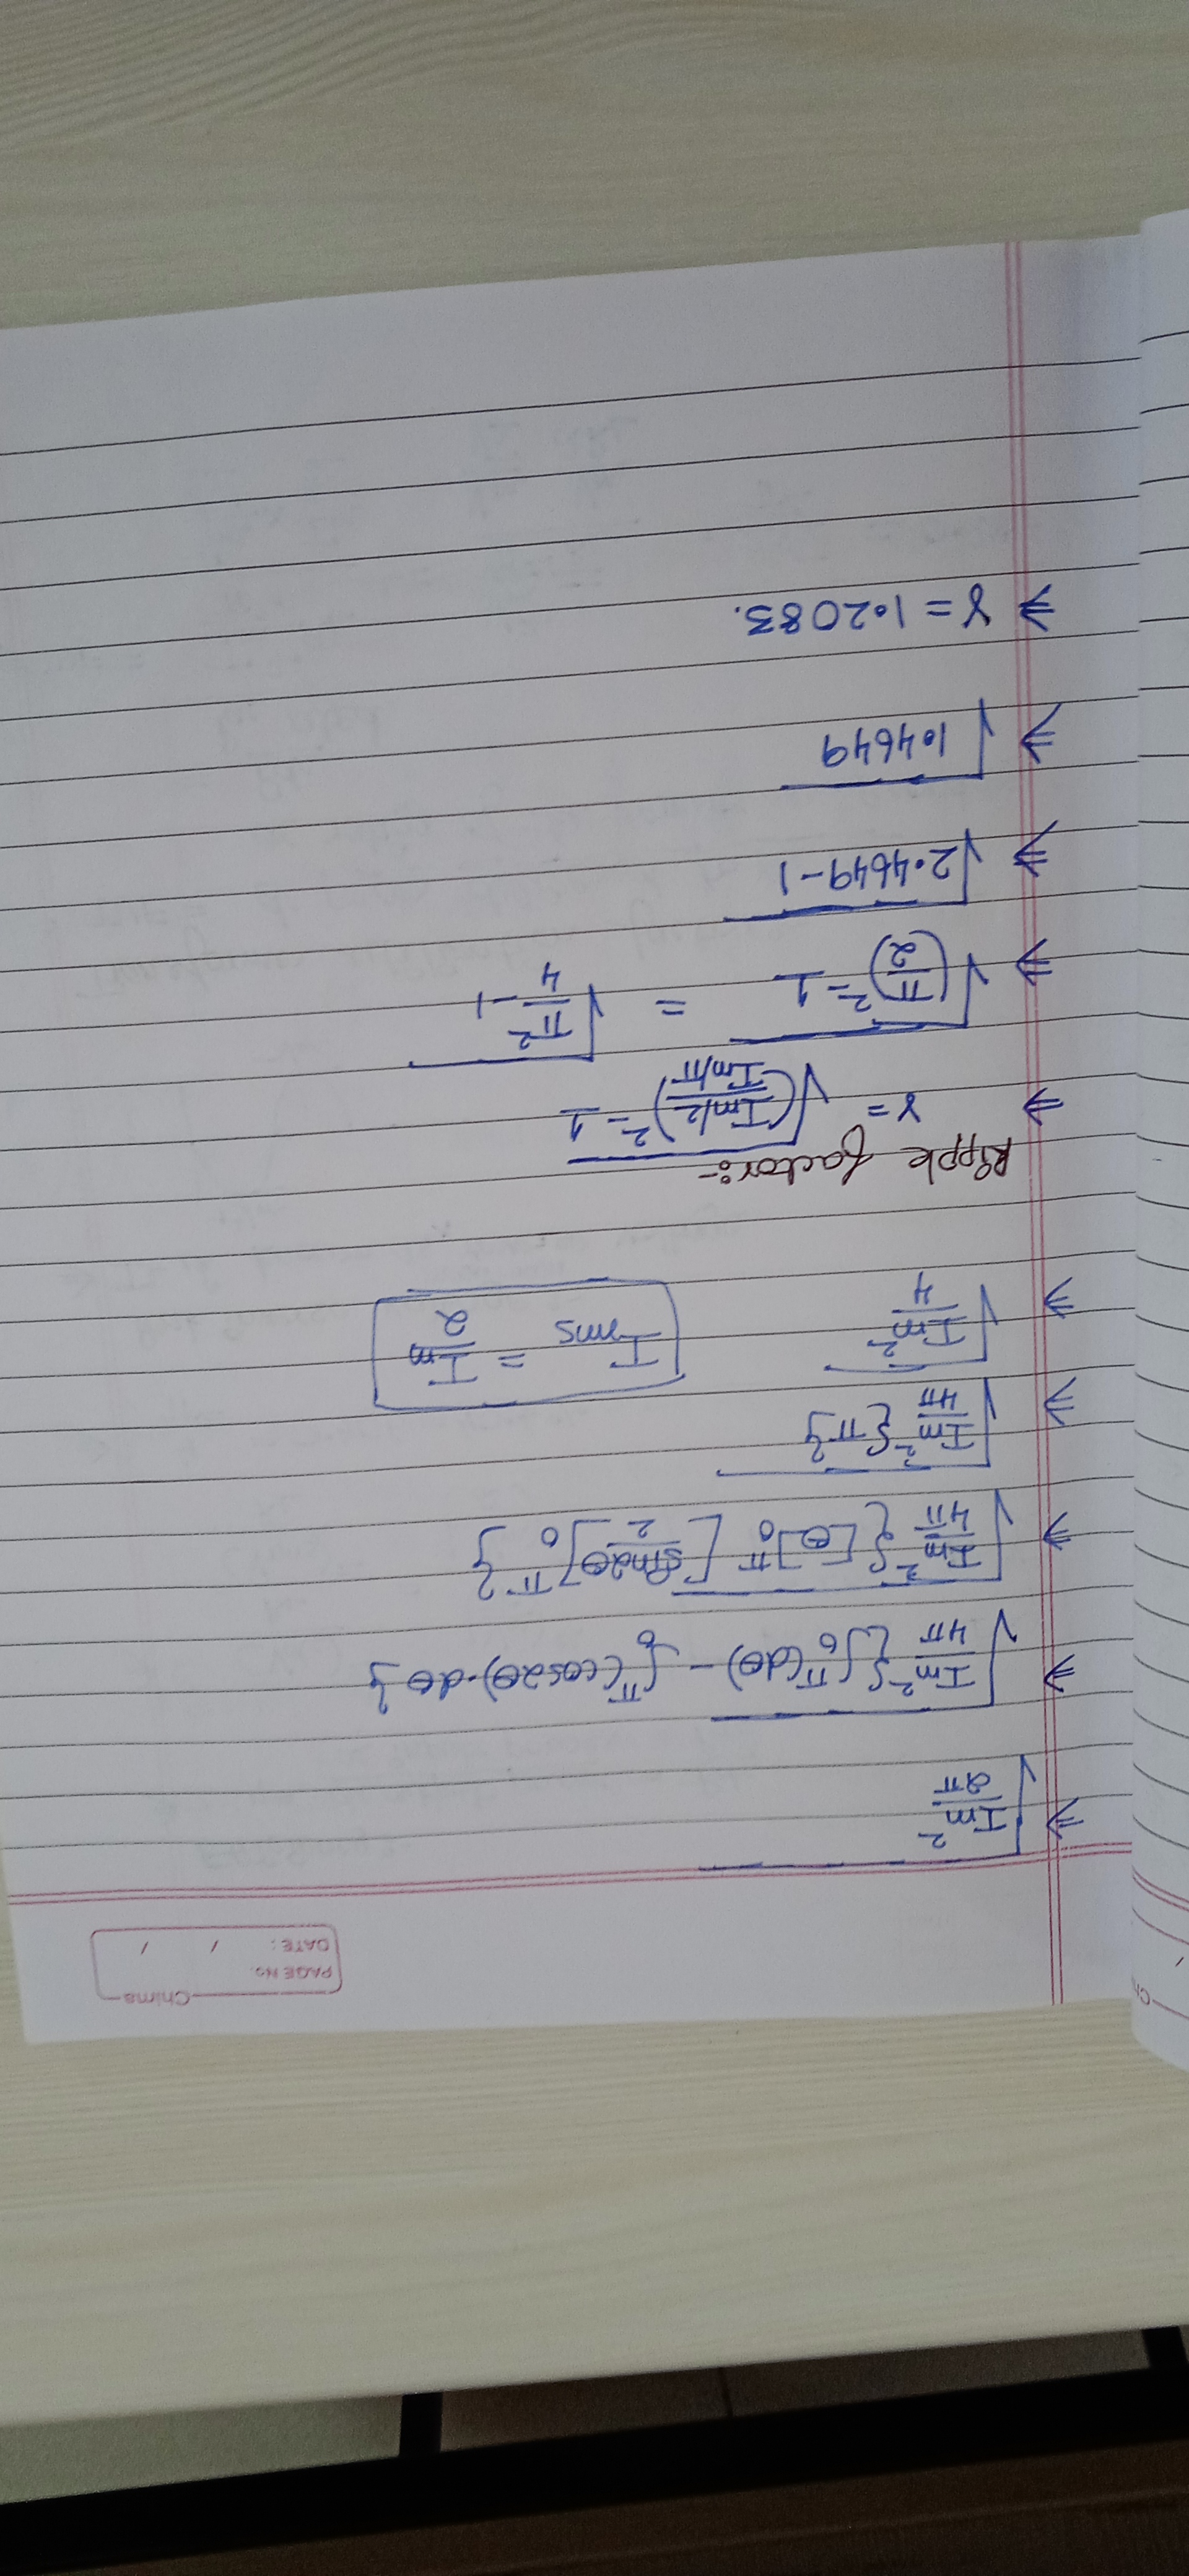 Chima
PAGE NO.
DATE: / /
⇒ √(Im²/2π)
⇒ √(Im²/4π {∫₀^π (dθ) - ∫₀^π (cos2θ)·dθ})
⇒ √(Im²/4π {[θ]₀^π [sin2θ/2]₀^π})
⇒ √(Im²/4π {π})
⇒ √(Im²/4) Irms = Im/2
Ripple factor:-
⇒ γ = √((Im/2 / Im/π)² - 1)
⇒ √((π/2)² - 1) = √(π²/4 - 1)
⇒ √(2.4649-1)
⇒ √1.4649
⇒ γ = 1.2083.